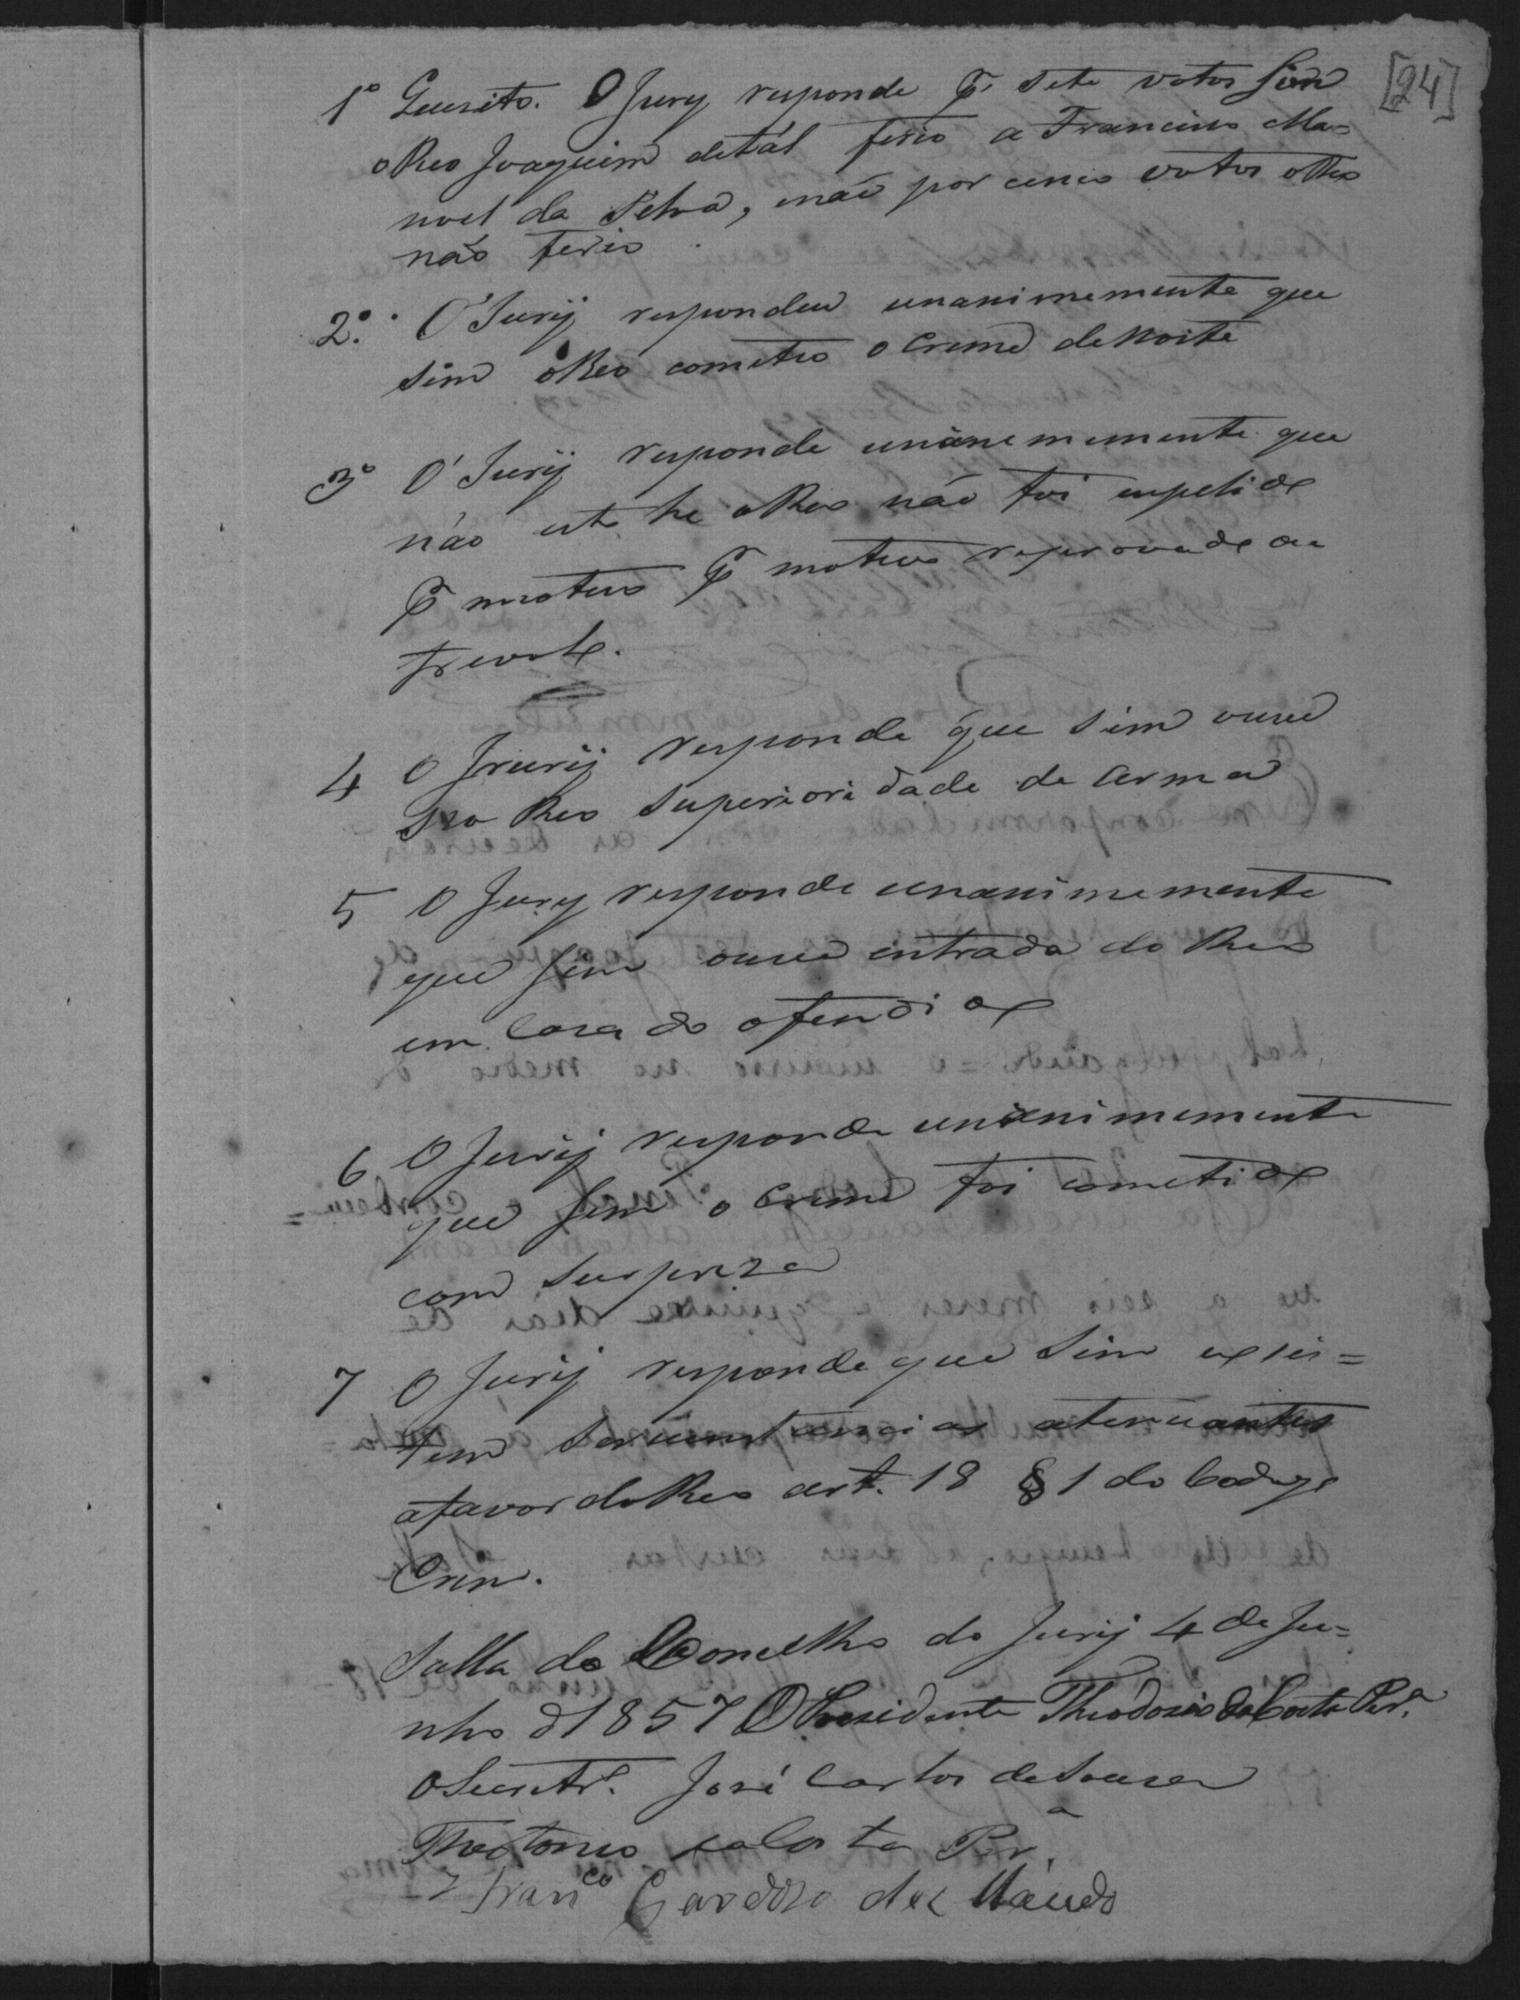 [24]
1º Quesito. O Jury responde p. sete votos sim
o Reo Joaquim de tal ferio a Francisco Ma=
noel da Silva, e não por cinco votos o Reo
não ferio
2º. O Jurÿ respondeu unanimemente que
sim o Reo cometeo o Crime de noite
3º O Jurÿ responde unanimemente que
não isto he o Reo não foi impelido
p motivo p motivo reprovado ou
frivolo.
4 O Jrurÿ responde que sim ouve
no Reo superioridade de arma
5 O Jury responde unanimemente
que sim ouve entrada do Reo
em Casa do ofendido
6 O Jurÿ responde unanimemente
que sim o crime foi cometido
com surpreza
7 O Jurÿ responde que sim exsis=
tem sircunstancias atenuantes
a favor do Reo art. 18 § 1 do Codigo
Crim.
Salla do Concelho do Jurÿ 4 de Ju=
nho d 1857 O Presidente Theodosio da Costa Perª.
O Secretrº. José Carlos de Souza
Theotonio da Costa Perª.
Franco Cardozo de Macedo